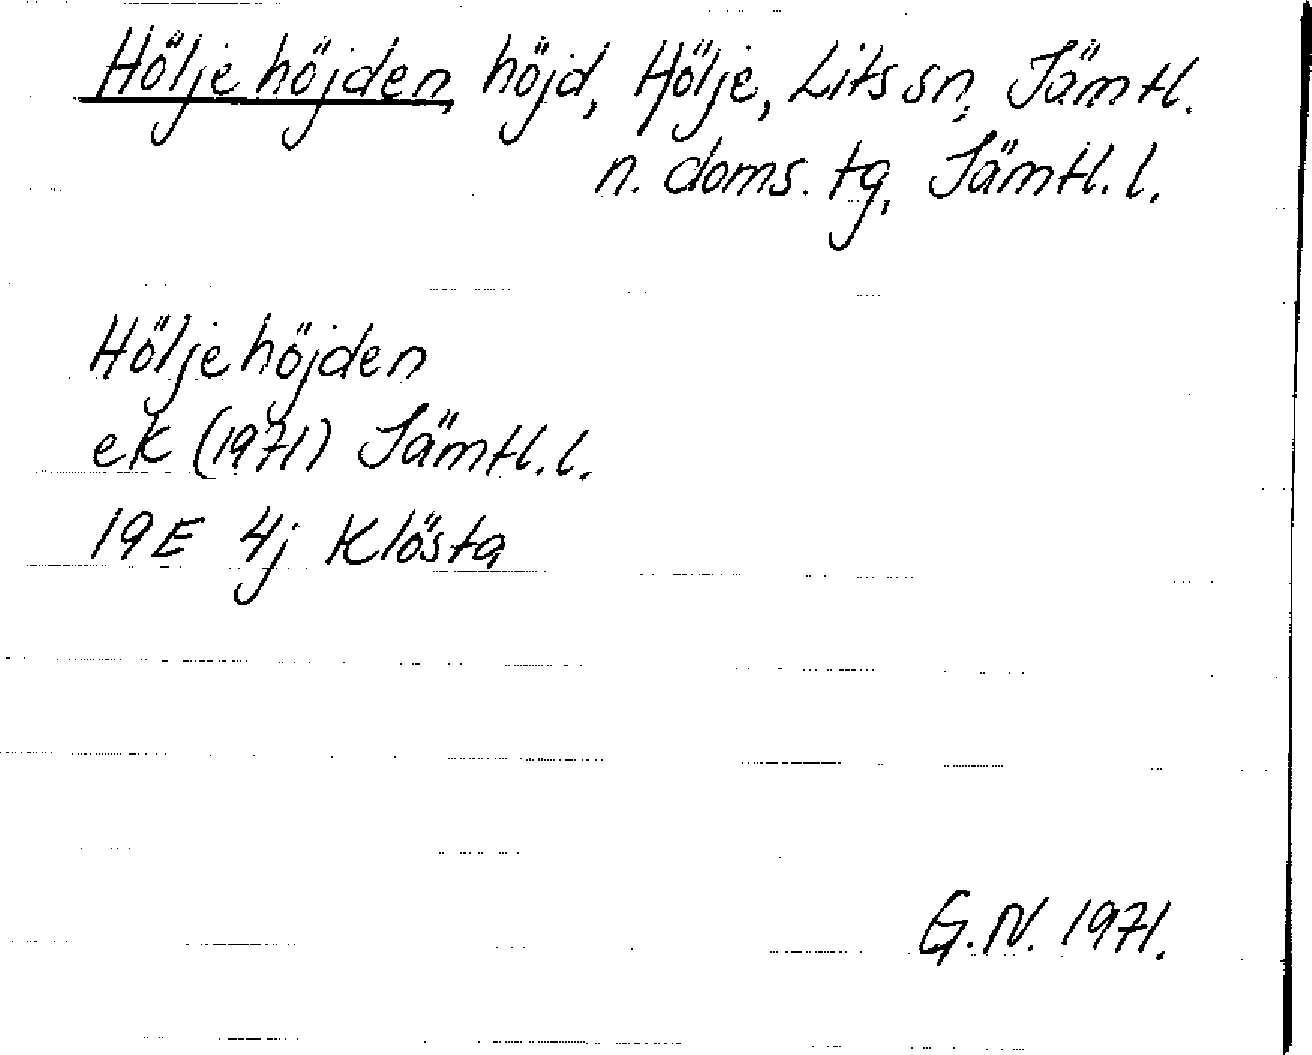 Höljehöjden, höjd, Hölje, Lits sn, Jämtl.
n. doms. tg, Jämtl. l.
Höljehöjden
ek (1971) Jämtl. l.
19E 4j Klösta
G.N. 1971.